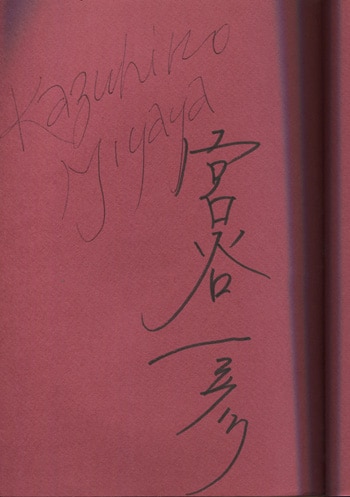 Kazuhiko
Miyaya
宮谷一彦